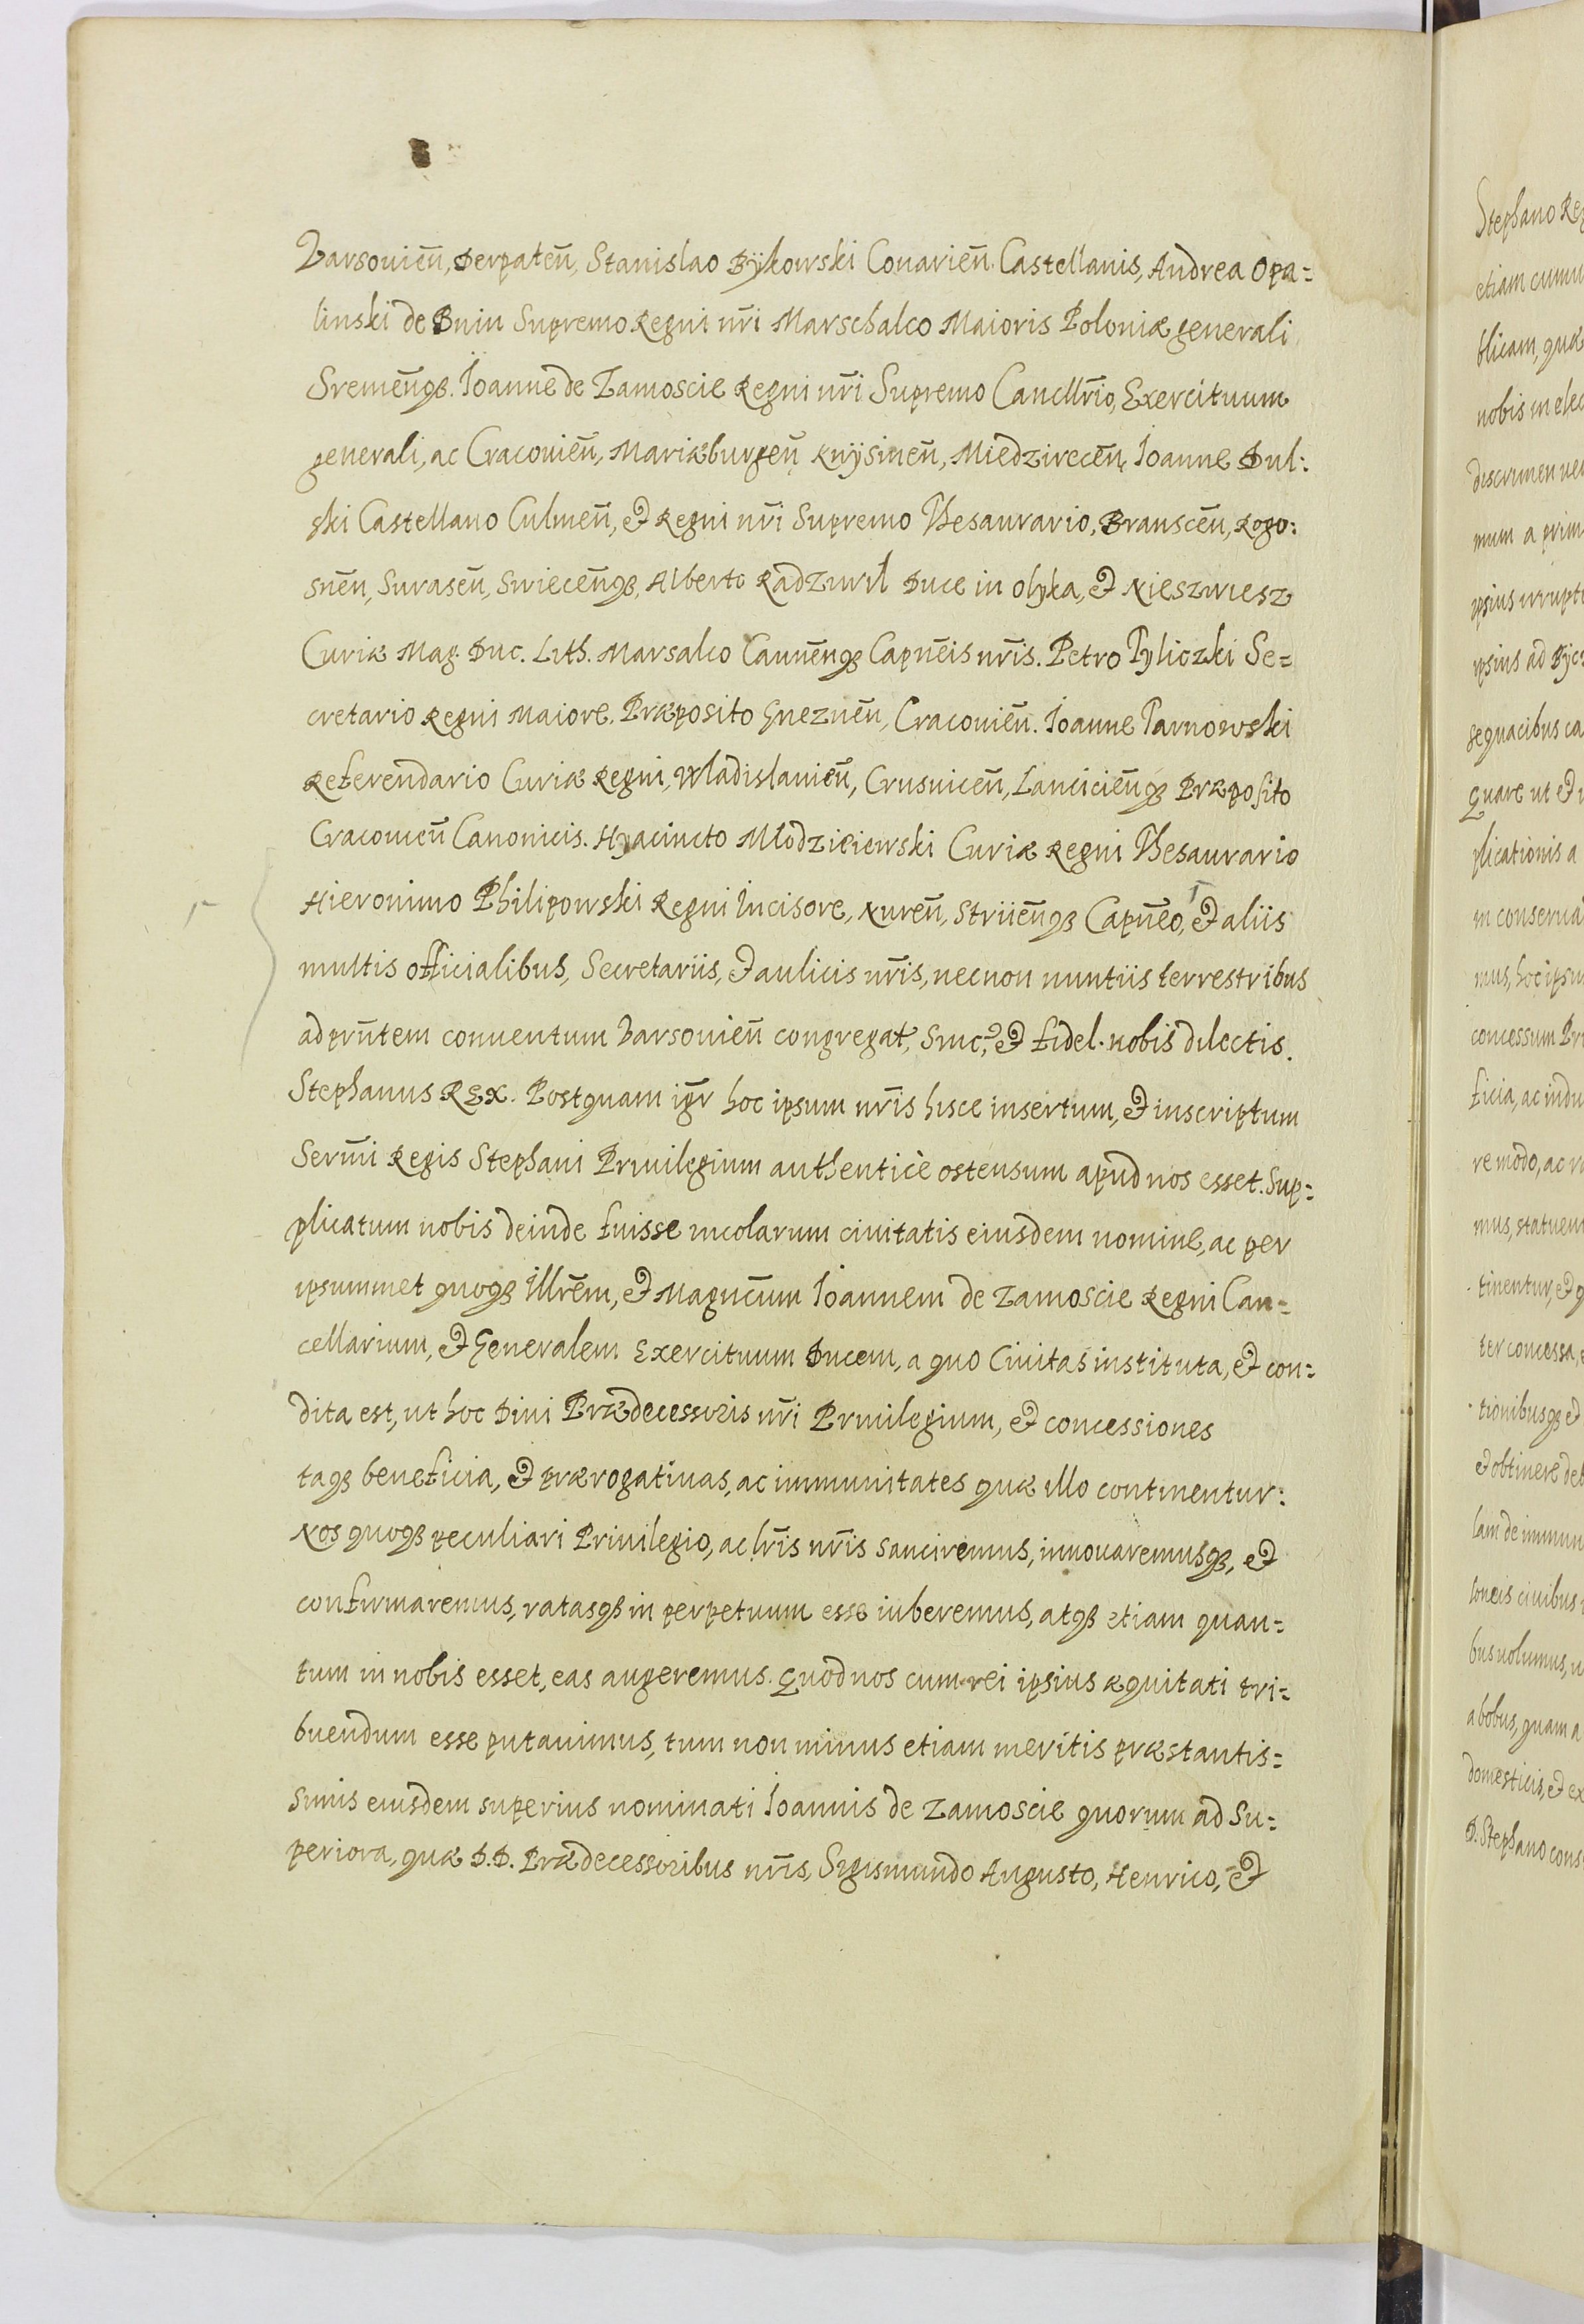 Varsovień, Derpateń, Stanislao Bÿkowski Conarień. Castellanis, Andrea Opa=
linski de Bnin Supremo Regni nr̄i Marschalco Maioris Poloniæ generali
Sremēnqꝫ. Ioanne de Zamoscie Regni nr̄i Supremo Cancllr̄io, Exercituum
generali, ac Cracovień, Mariæburgeń Knÿsineń, Miedzireceń, Ioanne Dul:
ski Castellano Culmeń, & Regni nr̄i Supremo Thesaurario, Bransceń, Rogo:
sneń, Suraseń, Swiecēnqꝫ, Alberto Radziwil Duce in Olyka, & Nieswiesz
Curiæ Mag. Duc. Lith. Marsalco Caunēnqꝫ Capnēis nr̄is. Petro Tyliczki Se=
cretario Regni Maiore. Præposito Gnezneń, Cracovień. Ioanne Tarnowski
Referendario Curiæ Regni, Wladislavień, Crusviceń, Lanciciēnqꝫ Præposito
Cracovień Canonicis. Hyacincto Młodzieiewski Curiæ Regni Thesaurario
Hieronimo Philipowski Regni Incisore, Nureń, Striiēnqꝫ Capnēo, & aliis
multis officialibus, Secretariis, & aulicis nr̄is, necnon nuntiis terrestribus
ad prn̄tem conventum Varsovień congregat, Sinc, & fidel. nobis dilectis.
Stephanus REX. Postquam igr̄ hoc ipsum nr̄is hisce insertum, & inscriptum
Serm̄i Regis Stephani Privilegium authenticè ostensum apud nos esset. Sup=
plicatum nobis deinde fuisse incolarum civitatis eiusdem nomine, ac per
ipsummet quoqꝫ Illrēm, & Magnc̄um Ioannem de Zamoscie Regni Can=
cellarium, & Generalem Exercituum Ducem, a quo Civitas instituta, & con=
dita est, ut hoc Divi Prædecessoris nr̄i Privilegium, & concessiones
taqꝫ beneficia, & prærogativas, ac immunitates quæ illo continentur:
Nos quoqꝫ peculiari Privilegio, ac lr̄is nr̄is sanciremus, innovaremusqꝫ, &
confirmaremus, ratasqꝫ in perpetuum esse iuberemus, atqꝫ etiam quan=
tum in nobis esset, eas augeremus. Quod nos cum rei ipsius æquitati tri=
buendum esse putavimus, tum non minus etiam meritis præstantis=
simis eiusdem superius nominati Ioannis de Zamoscie quorum ad Su=
periora, quæ D.D. Prædecessoribus nr̄is, Sigismundo Augusto, Henrico, &
Stephano Reg
etiam cumu
blicam, quæ
nobis in elec
discrimen
mum a prim
ipsius irrupti
ipsius ad Byc
sequacibus ca
Quare ut &
plicationis a
in conserva
mus, hoc ipsu
concessum Pri
ficia, ac indu
re modo, ac
mus, statuem
tinentur, & q
ter concessa,
tionibusqꝫ &
& obtinere deb
lam de immun
civibus
bus volumus,
a bobus, quam a
domesticis, & ex
D. Stephano cons